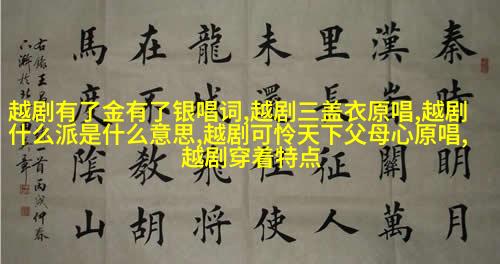 越剧有了金有了银唱词,越剧三盖衣原唱,越剧
什么派是什么意思,越剧可怜天下父母心原唱,
越剧穿着特点
秦時明月
漢關萬
里長征人
未還但使
龍城飛將
在不教胡
馬度陰山
右錄王首丙戌仲春